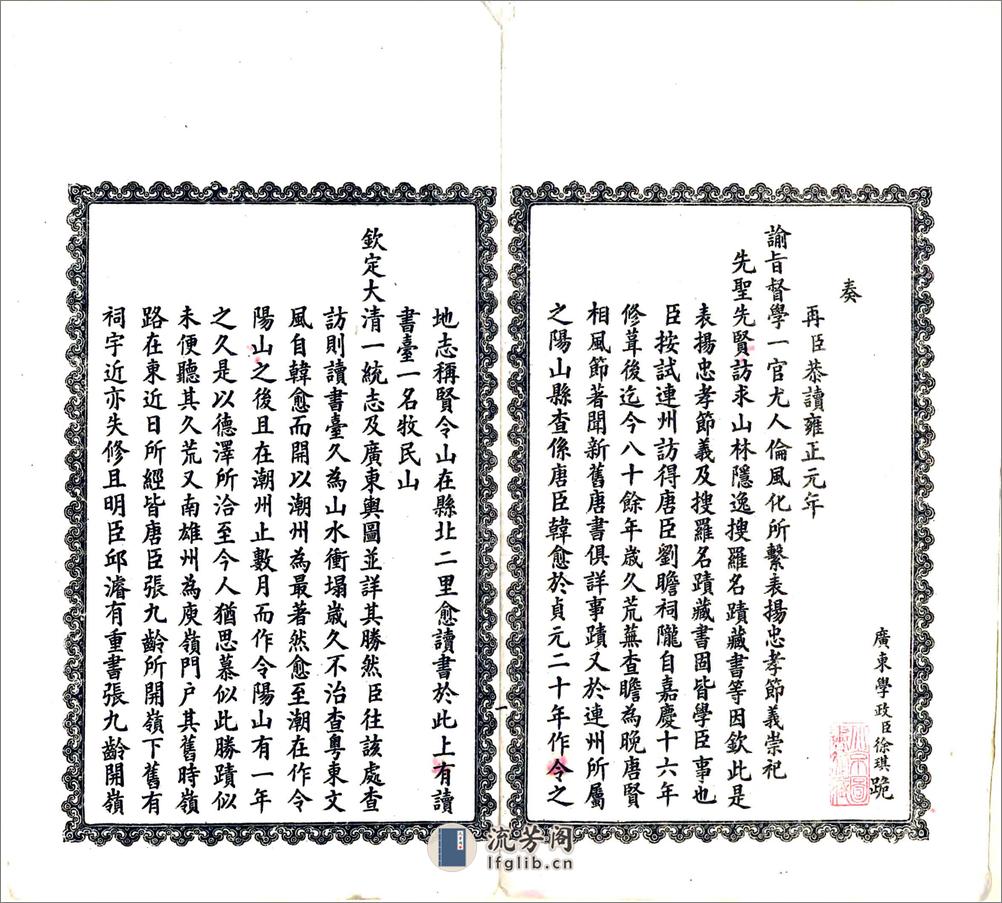 廣東學政臣徐琪跪
奏
再臣恭讀雍正元年
諭旨督學一官尤人倫風化所繫表揚忠孝節義崇祀
先聖先賢訪求山林隱逸搜羅名蹟藏書等因欽此是
表揚忠孝節義及搜羅名蹟藏書固皆學臣事也
臣按試連州訪得唐臣劉瞻祠隴自嘉慶十六年
修葺後迄今八十餘年歲久荒蕪查瞻為晚唐賢
相風節著聞新舊唐書俱詳事蹟又於連州所屬
之陽山縣查係唐臣韓愈於貞元二十年作令之
一
地志稱賢令山在縣北二里愈讀書於此上有讀
書臺一名牧民山
欽定大清一統志及廣東輿圖並詳其勝然臣往該處查
訪則讀書臺久為山水衝塌歲久不治查粵東文
風自韓愈而開以潮州為最著然愈至潮在作令
陽山之後且在潮州止數月而作令陽山有一年
之久是以德澤所洽至今人猶思慕似此勝蹟似
未便聽其久荒又南雄州為庾嶺門户其舊時嶺
路在東近日所經皆唐臣張九齡所開嶺下舊有
祠宇近亦失修且明臣邱濬有重書張九齡開嶺
流芳阁
lfglib.cn